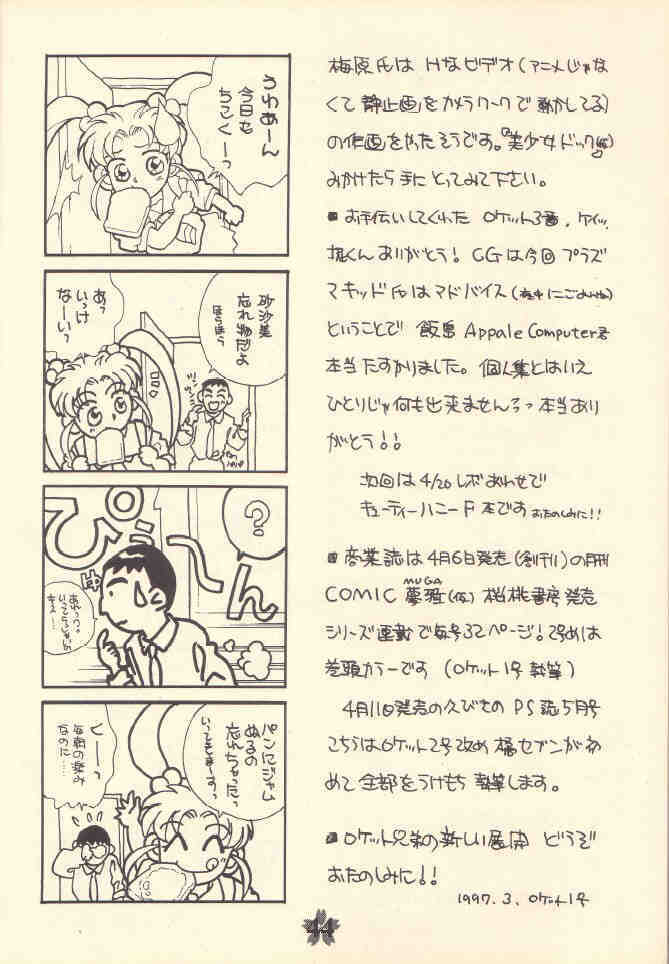 うわあーん
今日も
ちこくーっ
砂沙美
忘れ物だよ
ほらほら
あっ
いっけ
なーいっ
?
ぴゅーん
あれっ?
いってらっしゃいの
キスー…
パンにジャム
ぬるの
忘れちゃったっ
いってきまーすっ
くーっ
毎朝の楽み
なのに……
梅原氏は Hなビデオ(アニメじゃな
くて 静止画をカメラワークで動かしてる)
の作画をやったそうです。『美少女ドック(仮)』
みかけたら手にとってみて下さい。
■お手伝いしてくれた ロケット3番、ケイッ、
堀くんありがとう! CGは今回プラズ
マキッド氏はアドバイス
ということで 飯島 Appale Computer君
本当 たすかりました。 個人集とはいえ
ひとりじゃ何も出来ませんろっ本当あり
がとう!!
次回は 4/20 レボあわせで
キューティーハニーF 本です おたのしみに!!
■商業誌は4月6日発売(創刊)の月刊
COMIC 夢雅(仮) 桜桃書房発売
MUGA
シリーズ連動で毎号32ページ! 2号めは
巻頭カラーです (ロケット1号 執筆)
4月11日発売の久びさの PS誌5月号
こちらはロケット2号改め 橘セブンが初
めて全部をうけもち 執筆します。
■ロケット兄弟の新しい展開 どうぞ
おたのしみに!!
1997.3. ロケット1号
44